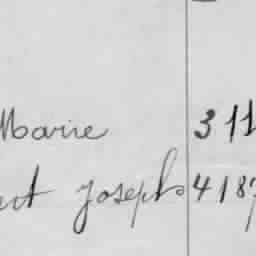 Marie 311
Joseph 4187